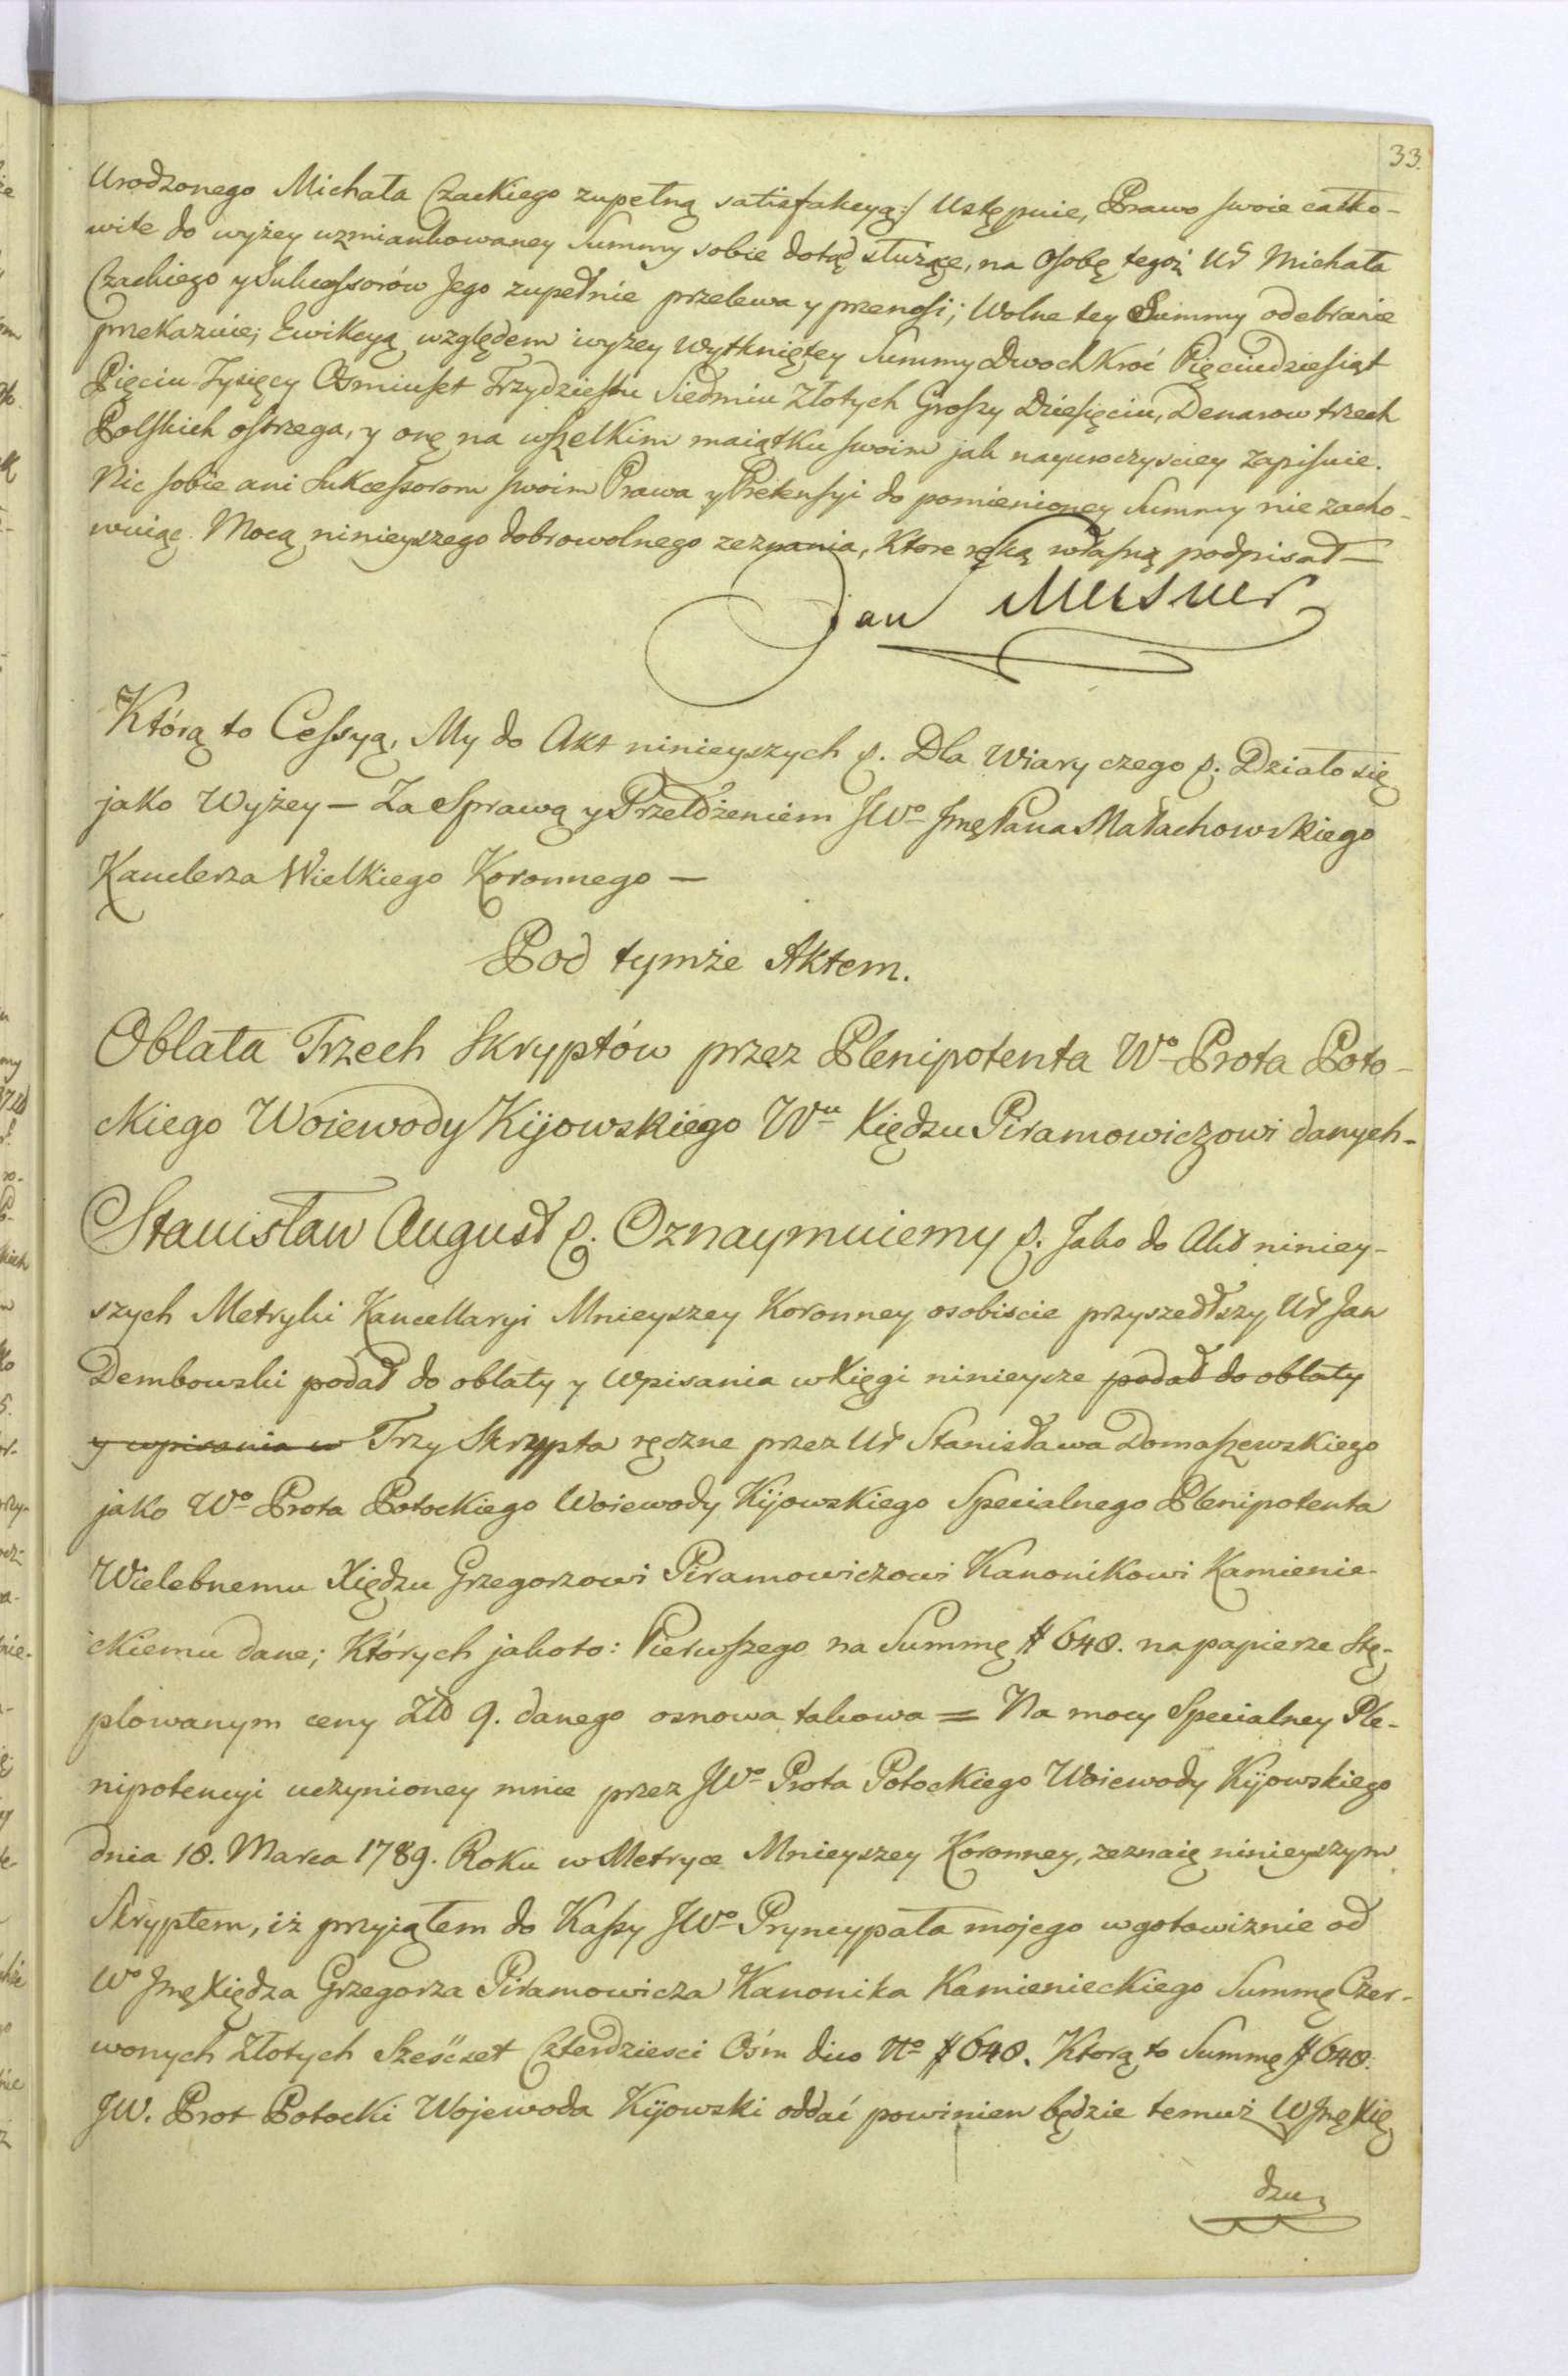 33.
Urodzonego Michała Czackiego zupełną satisfakcyą :/ Ustępuie, Prawo swoie całko-
wite do wyżey uzmiankowaney Summy sobie dotąd służące, na Osobę tegoż Ur Michała
Czackiego y Sukcessorów Jego zupełnie przelewa y przenosi; Wolne tey Summy odebranie
przekazuie; Ewikcyą względem wyżey wytkniętey Summy Dwoch Kroć Pięciudziesiąt
Pięciu Tysięcy Osmiuset Trzydziestu Siedmiu Złotych Groszy Dziesięciu, Denarow trzech
Polskich ostrzega, y onę na wszelkim maiątku swoim jak nayuroczyściey zapisuie.
Nic sobie ani Sukcessorom swoim Prawa y Pretensyi do pomienioney Summy nie zacho-
wuiąc. Mocą ninieyszego dobrowolnego zeznania, Ktore ręką własną podpisał —
Jan Meisner
Którą to Cessyą, My do Akt ninieyszych p. Dla Wiary czego p. Działo się
jako Wyżey — Za Sprawą y Przełożeniem JWo Jmę Pana Małachowskiego
Kanclerza Wielkiego Koronnego —
Pod tymże Aktem.
Oblata Trzech Skryptów przez Plenipotenta Wo Prota Poto-
ckiego Woiewody Kijowskiego Wu Xiędzu Piramowiczowi danych-
Stanisław August p. Oznaymuiemy p. Jako do Akt niniey-
szych Metryki Kancellaryi Mnieyszey Koronney osobiscie przyszedłszy Ur Jan
Dembowski podał do oblaty y wpisania w Xięgi ninieysze podał do oblaty
y wpisania w Trzy Skrypta ręczne przez Ur Stanisława Domaszewskiego
jako Wo Prota Potockiego Woiewody Kijowskiego Specialnego Plenipotenta
Wielebnemu Xiędzu Grzegorzowi Piramowiczowi Kanonikowi Kamienie-
ckiemu dane; Których jakoto: Pierwszego na Summę # 648. na papierze Stę-
plowanym ceny Zło 9. danego osnowa takowa = Na mocy Specialney Ple-
nipotencyi uczynioney mnie przez JWo Prota Potockiego Woiewody Kijowskiego
dnia 18. Marca 1789. Roku w Metryce Mnieyszey Koronney, zeznaię ninieyszym
Skryptem, iż przyiąłem do Kassy JWo Pryncypała mojego w gotowiznie od
Wo Jmę Xiędza Grzegorza Piramowicza Kanonika Kamienieckiego Summę Czer-
wonych Złotych Sześćset Czterdziesci Ośm dico No # 648. Którą to Summę # 648.
JW. Prot Potocki Wojewoda Kijowski oddać powinien będzie temuż WJmę Xię
dzu